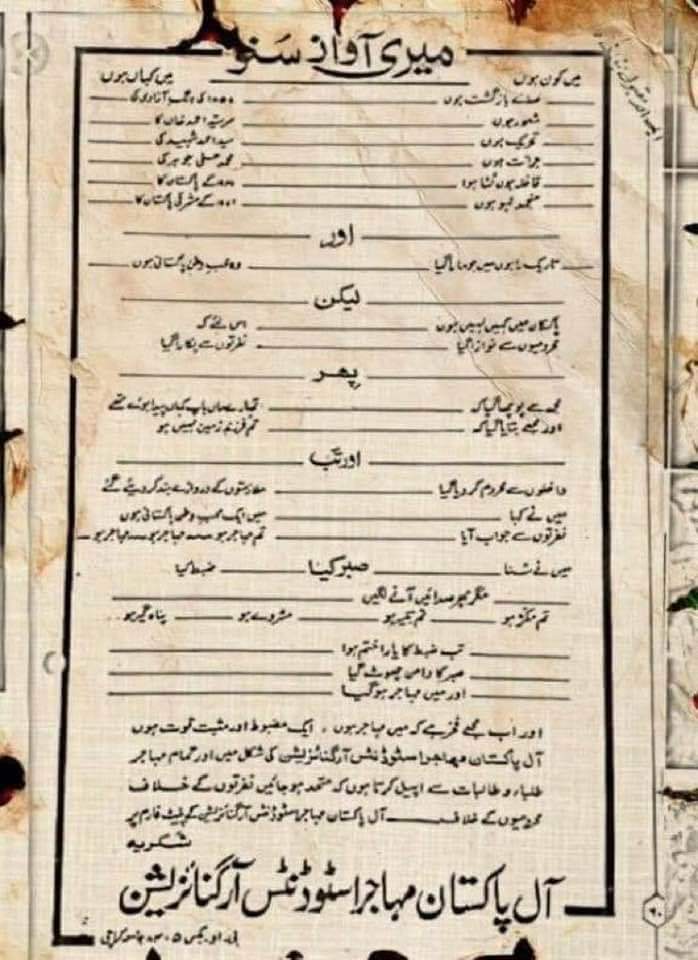 میری آواز سنو
میں کون ہوں ــــــ میں کہاں ہوں
صدائے بازگشت ہوں ــــــ ۱۸۵۷ کی جنگ آزادی کی
شعور ہوں ــــــ سرسید احمد خان کا
تحریک ہوں ــــــ سید احمد شہید کی
جرات ہوں ــــــ محمد علی جوہر کی
قافلہ ہوں لٹا ہوا ــــــ ۱۹۴۷ کے پاکستان کا
منجمد لہو ہوں ــــــ ۱۹۷۱ کے مشرقی پاکستان کا
اور
تاریک راہوں میں جو مارا گیا ــــــ وہ محب وطن پاکستانی ہوں
لیکن
پاکستان میں کہیں نہیں ہوں ــــــ اس لئے کہ
محرومیوں سے نوازا گیا ــــــ نفرتوں سے پکارا گیا
پھر
مجھ سے پوچھا گیا کہ ــــــ تمہارے ماں باپ کہاں پیدا ہوئے تھے
اور مجھے بتایا گیا کہ ــــــ تم فرزند زمین نہیں ہو
اور تب
داخلوں سے محروم کر دیا گیا ــــــ ملازمتوں کے دروازے بند کر دیئے گئے
میں نے کہا ــــــ میں ایک محب وطن پاکستانی ہوں
نفرتوں سے جواب آیا ــــــ تم مہاجر ہو ــــ مہاجر ہو ــــ مہاجر ہو
میں نے سنا ــــــ صبر کیا ــــــ ضبط کیا
مگر پھر صدائیں آنے لگیں
تم مکڑ ہو ــــــ تم تلیر ہو ــــــ مٹروے ہو ــــــ پناہ گیر ہو
تب ضبط کا یارا ختم ہوا
صبر کا دامن چھوٹ گیا
اور میں مہاجر ہو گیا
اور اب مجھے فخر ہے کہ میں مہاجر ہوں ۔ ایک مضبوط اور مثبت قوت ہوں
آل پاکستان مہاجر اسٹوڈنٹس آرگنائزیشن کی شکل میں اور تمام مہاجر
طلباء و طالبات سے اپیل کرتا ہوں کہ متحد ہو جائیں نفرتوں کے خلاف
محرومیوں کے خلاف ــــــ آل پاکستان مہاجر اسٹوڈنٹس آرگنائزیشن کے پلیٹ فارم پر
شکریہ
آل پاکستان مہاجر اسٹوڈنٹس آرگنائزیشن